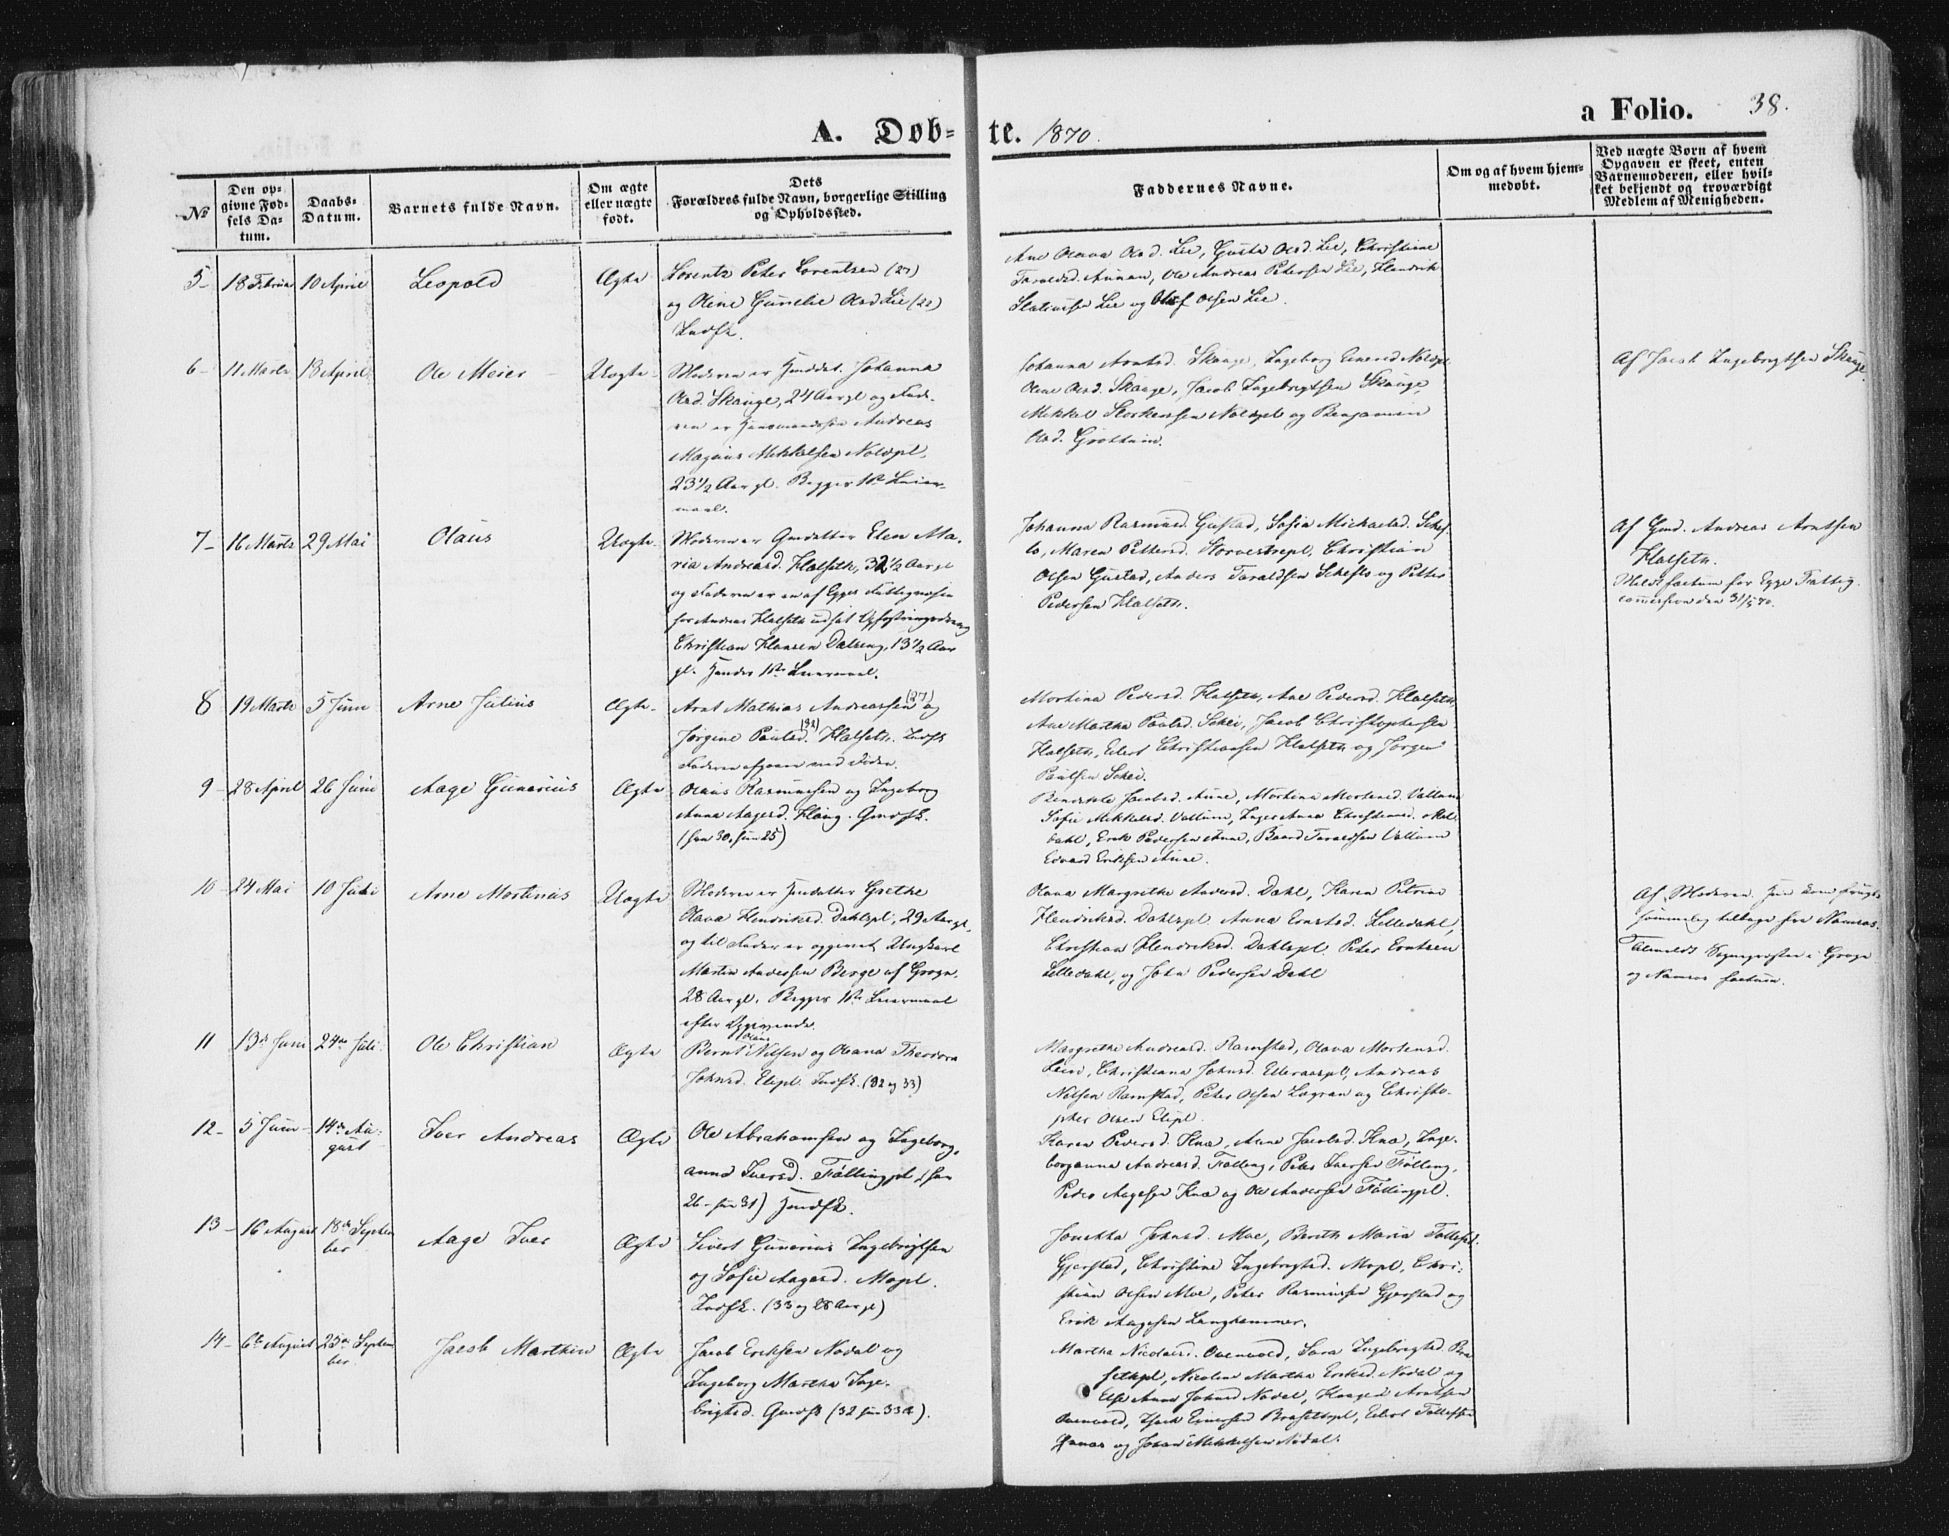 A. Døb- te. 1870.
a Folio. 38.
№
Den op-
givne Fød-
sels Da-
tum.
Daabs-
Datum.
Barnets fulde Navn.
Om ægte
eller uægte
født.
Dets
Forældres fulde Navn, borgerlige Stilling
og Opholdssted.
Faddernes Navne.
Om og af hvem hjem-
medøbt.
Ved uægte Børn af hvem
Opgaven er skeet, enten
Barnemoderen, eller hvil-
ket bekjendt og troværdigt
Medlem af Menigheden.
5 - 18 Februar 10 April Leopold Ægte
Lorentz Peter Lorentzen (27)
og Oline Gunelie Olsd Lie (22)
Indsk.
Ane Olava Olsd. Lie, Gusta Olsd. Lie, Christine
Taraldsd. Aunan, Ole Andreas Petersen Lie, Hendrik
Lie og Oluf Olsen Lie.
6 - 11 Marts 18 April Ole Meier Uægte
Moderen er Johanna
Olsd. Skauge, 24 Aar gl og Fade-
ren er Andreas
Magnus Mikkelsen Nolvpl.
23 1/2 Aar gl. Begges 1ste Leier-
maal.
Johanna Arntsd. Skauge, Ingeborg Nolvpl
Oline Olsd. Skauge, Jacob Ingebrigtsen Skauge,
Mikkel Storkersen Nolvpl og Benjamin
Olsd.
Af Jacob Ingebrigtsen Skauge.
7 - 16 Marts 29 Mai Olaus Uægte
Moderen er Gmdatter Elen Ma-
ria Andreasd. Halseth, 32 1/2 Aar gl
og Faderen er en af Egges Fattigvæsen
for Andreas Halseth udsat Opfostringsdreng
Christian Hansen Dalseng, 13 1/2 Aar
gl. Hendes 1ste Leiermaal.
Johanna Rasmusd. Gustad, Sofia Michaelsd. Schef-
lo, Maren Pettersd. Christian
Olsen Gustad, Anders Taraldsen Scheflo og Petter
Pedersen Halseth.
Af Gmd. Andreas Arntsen
Halseth.
Meldt factum for Egge Fattig-
commission den 31/5 70.
8 19 Marts 5 Juni Arne Julius Ægte
Arnt Mathias Andreassen (27) og
Jørgine Paulsd. (32) Halseth. Indsk
Faderen afgaaen ved Døden.
Mortina Pedersd. Halseth, Ane Pedersd. Halseth,
Ane Martha Paulsd. Schei, Jacob Christophersen
Halseth, Edert Christiansen Halseth og Jørgen
Paulsen Schei.
9 - 28 April 26 Juni Aage Gunerius Ægte
Olaus Rasmussen og Ingeborg
Anna Aagesd. Haug. Gmdsk.
(han 30, hun 25)
Jacobsd. Aune, Mortina Mortensd. Vallum
Sofie Mikkelsd. Vallum, Inger Anna Christiansd.
dahl, Erik Pedersen Aune, Baard Taraldsen Vallum
Edvard Eriksen Aune.
10 - 24 Mai 10 Juli Arne Martinus Uægte
Moderen er Grethe
Olava Hendriksd. Dahlspl, 29 Aar gl,
og til Fader er opgivet Ungkarl
Martin Andersen Berge af Grong.
28 Aar gl. Begges 1ste Leiermaal
efter Opgivende.
Olava Margrethe Andersd. Dahl, Karen Petrine
Hendriksd. Dahlspl Anna Lilledahl,
Christian Hendriksd. Dahlspl. Peter
Lilledahl, og John Pedersen Dahl
Af Moderen. Hun kom
tilbage fra Namsos.
Tilmeldt Sognepræsten i Grong
og Namsos factum.
11 13de Juni 24de Juli Ole Christian Ægte
Bernt Olaus Nilsen og Olana Theodora
Johnsd. Elvpl. Indsk. (32 og 33)
Margrethe Andreasd. Ramstad, Olava Mortensd.
Leien, Christiana Johnsd. Andreas
Nilsen Ramstad, Peter Olsen Lægran og Christo-
pher Olsen Elvpl.
12 - 5 Juni - 14de Au-
gust Iver Andreas Ægte
Ole Abrahamsen og Ingeborg-
anna Iversd. Føllingpl (han
26 - hun 31)
Karen Pedersd. Kne, Anne Jacobsd. Kne, Inge-
borganna Andreasd. Følling, Peter Iversen Følling,
Peder Aagesen Kne og Ole Andersen Føllingpl.
13 - 16 August 18de Septem-
ber Aage Iver Ægte
Sivert Gunerius Ingebrigtsen
og Sofie Aagesd. Mopl.
Indsk. (33 og 28 Aar gl)
Johnsd. Moe, Bereth Maria Tollefsd.
Gjerstad, Christine Ingebrigtsd. Mopl, Chri-
stian Olsen Moe, Peter Rasmussen Gjerstad og
Erik Aagesen Langhammer.
14 - 6te August 25de Septem-
ber Jacob Marthin Ægte
Jacob Eriksen Nødal og
Ingeborg Martha Inge-
brigtsd. Gmdsk (32 hun 33 A).
Martha Nicolaisd. Ovenvold, Sara Ingebrigtsd. Bra-
sethpl, Nicoline Martha Eriksd. Nødal og
Else Anna Johnsd Nødal, Arntsen
Ovenvold, Brasethpl, Edert Tollefsen
og Johan Mikkelsen Nødal.